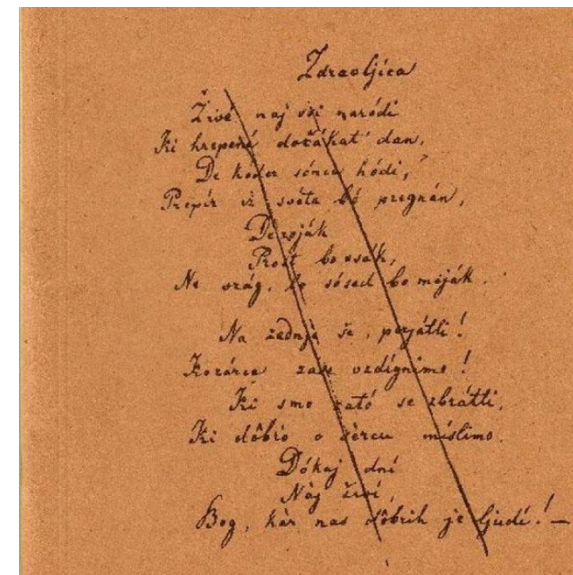 Zdravljica
Živé naj vsi naródi
Ki hrepené dočakat' dan,
De koder sónce hódi,
Prepír iz svéta bó pregnàn,
De roják
Prost bo vsák,
Ne vrag, le sósed bo moják.
Na zadnje še, perjátli!
Kozárce zase vzdígnimo!
Ki smo zató se zbrátli,
Ki dôbro v sèrcu míslimo.
Dókaj dní
Naj živí
Bog, kàr nas dôbrih je ljudi! —